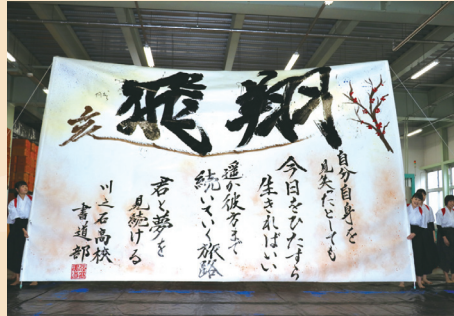 飛翔
亥
自分自身を
見失たとしても
今日をひたすら
生きればいい
遥か彼方まで
続いていく旅路
君と夢を
見続ける
川之石高校
書道部